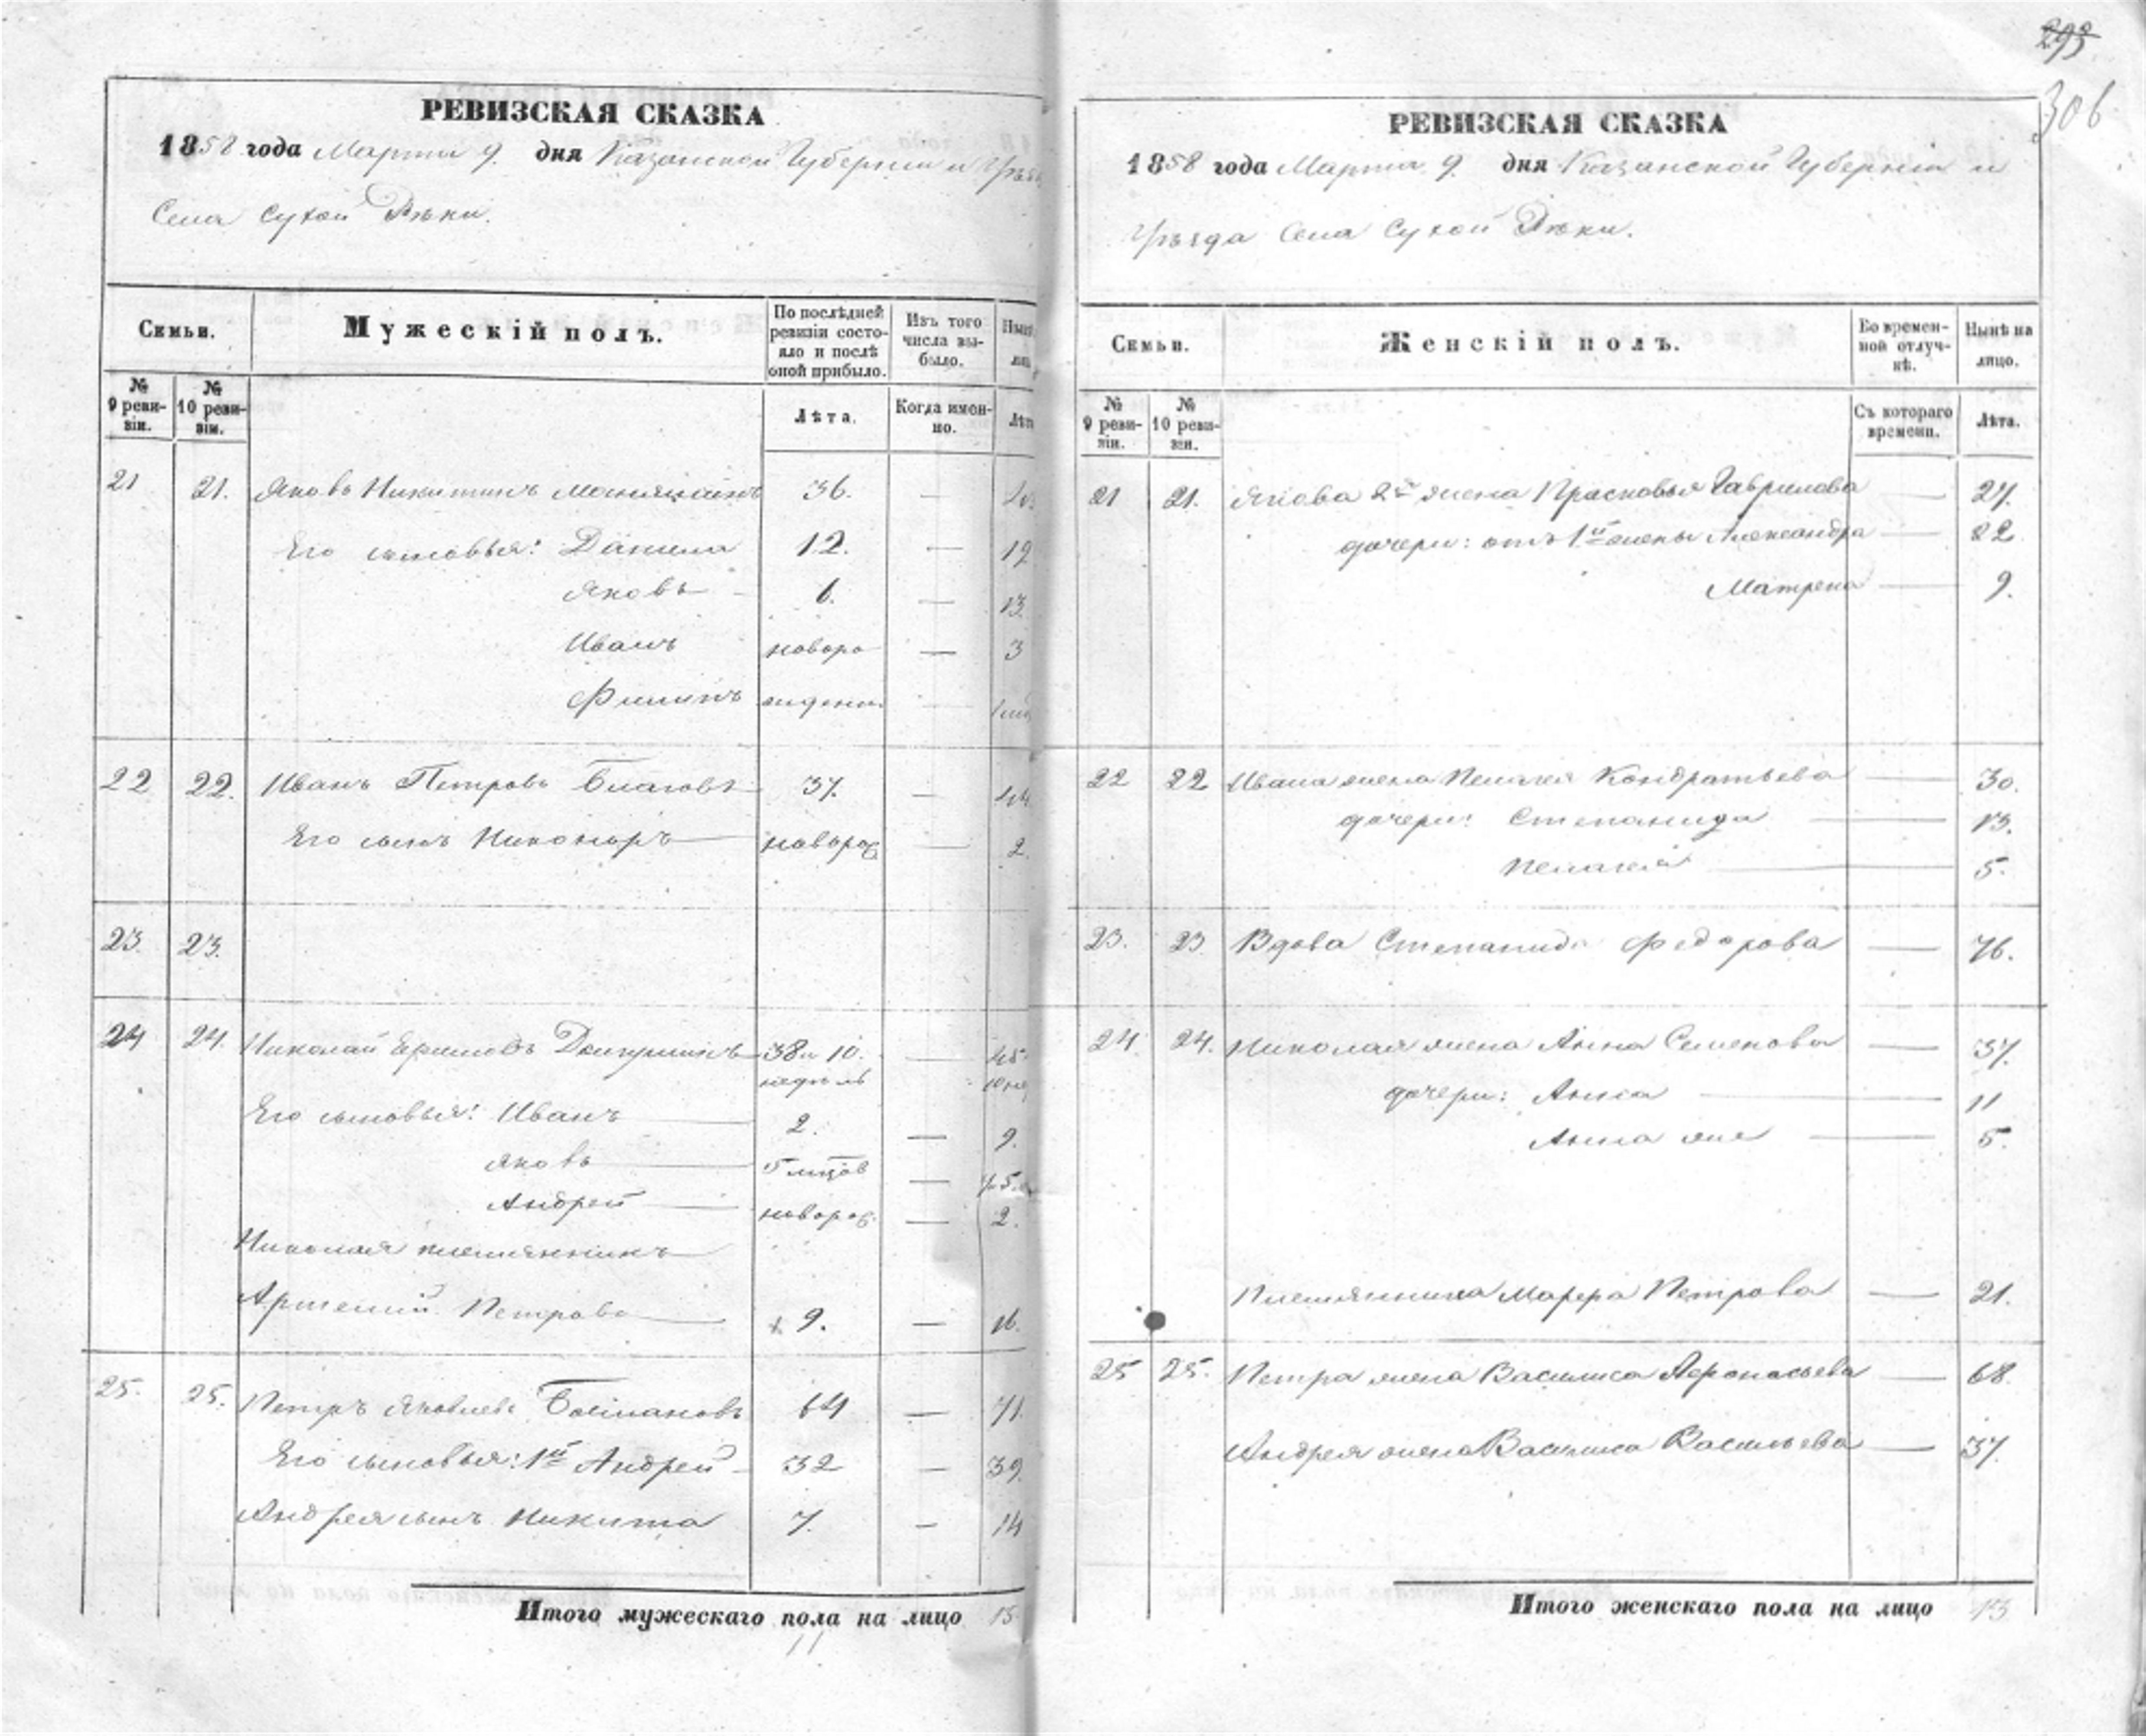 293
306
РЕВИЗСКАЯ СКАЗКА
1858 года Марта 9. дня Казанской Губерніи и Уѣзд
Села Сухой Рѣки.
Семьи.
Мужескій полъ.
По послѣдней ревизіи состояло и послѣ оной прибыло.
Изъ того числа выбыло.
№ 9 ревизіи.
№ 10 ревизіи.
Лѣта.
Когда именно.
Лѣта
21 21. Яковъ Никитинъ 36. —
Его сыновья: Данила 12. — 19
Яковъ — 6. — 13.
Иванъ новоро — 3
Филипъ жденн. —
22 22. Иванъ Петровъ Благовъ 37. — 44
Его сынъ Никоноръ — новорож — 2.
23. 23.
24 24. Николай Ефимовъ 38 и 10. — 45.
недѣль
Его сыновья: Иванъ — 2. — 9.
Яковъ — 5 мцовъ — 7 5
Андрей — новорож. — 2.
Николая племянникъ —
Артемій Петровъ — 9. — 16.
25. 25. Петръ Яковлевъ 64 — 71.
Его сыновья: 1й Андрей — 32 — 39.
Андрея сынъ Никита 7. — 14
Итого мужескаго пола на лицо 15
11
РЕВИЗСКАЯ СКАЗКА
1858 года Марта 9. дня Казанской Губерніи и
Уѣзда Села Сухой Рѣки.
Семьи.
Женскій полъ.
Во временной отлучкѣ.
Нынѣ на лицо.
№ 9 ревизіи.
№ 10 ревизіи.
Съ котораго времени.
Лѣта.
21 21. Якова 2я жена Прасковья Гаврилова — 27.
дочери: отъ 1й жены Александра — 22
Матрена — 9.
22 22 Ивана жена Пелагея Кондратьева — 30.
дочери: Степанида — 13.
Пелагея — 5.
23. 23 Вдова Степанида Федорова — 76.
24. 24. Николая жена Анна Семенова — 37.
дочери: Анна — 11
Анна же — 5.
Племянница Марфа Петрова — 21.
25 25. Петра жена Василиса Афонасьева — 68.
Андрея жена Василиса Васильева — 37.
Итого женскаго пола на лицо 13